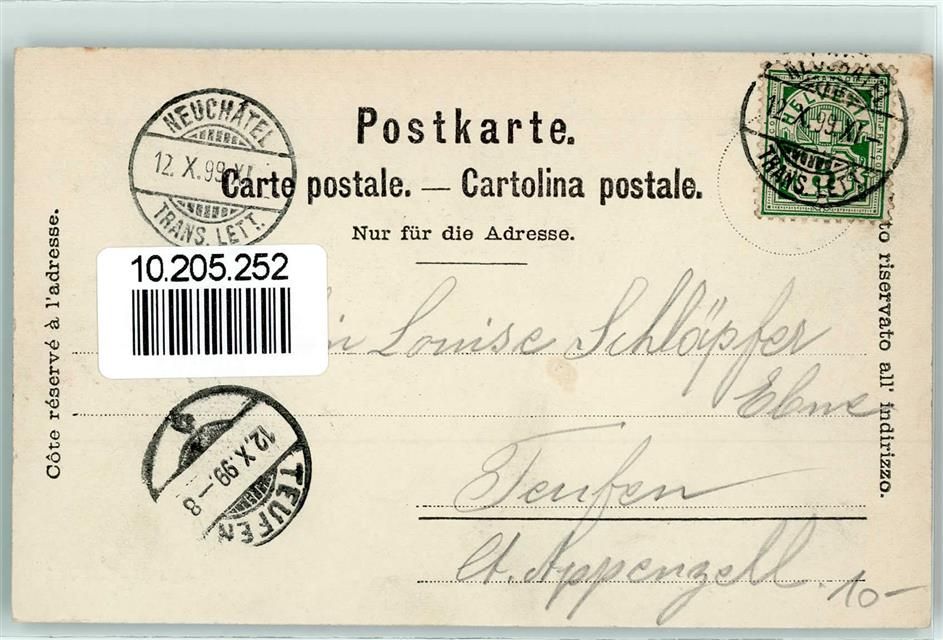 Postkarte.
Carte postale. — Cartolina postale.
Nur für die Adresse.
Côte réservé à l'adresse.
to riservato all' indirizzo.
NEUCHÂTEL
12. X. 99. XI
TRANS. LETT.
12. X. 99. XI
TRANS. LETT.
10.205.252
Louise Schläpfer
Teufen
Ct. Appenzell.
10-
12. X. 99. - 8
TEUFEN